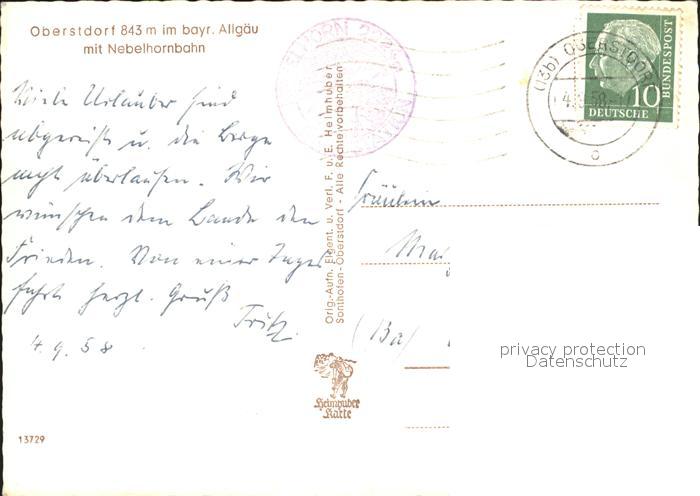 Oberstdorf 843 m im bayr. Allgäu
mit Nebelhornbahn
Viele Urlauber sind
abgereist u. die Berge
nicht überlaufen. Wir
wünschen dem Lande den
Frieden. Von einer Tages
fahrt herzl. Gruß
Fritz.
4.9.58.
13729
Orig.-Aufn. Eigent. u. Verl. F. u. E. Heimhuber
Sonthofen-Oberstdorf - Alle Rechte vorbehalten
Heimhuber
Karte
(13b) OBERSTDORF
c
10
DEUTSCHE
BUNDESPOST
Fräulein
(13a)
privacy protection
Datenschutz